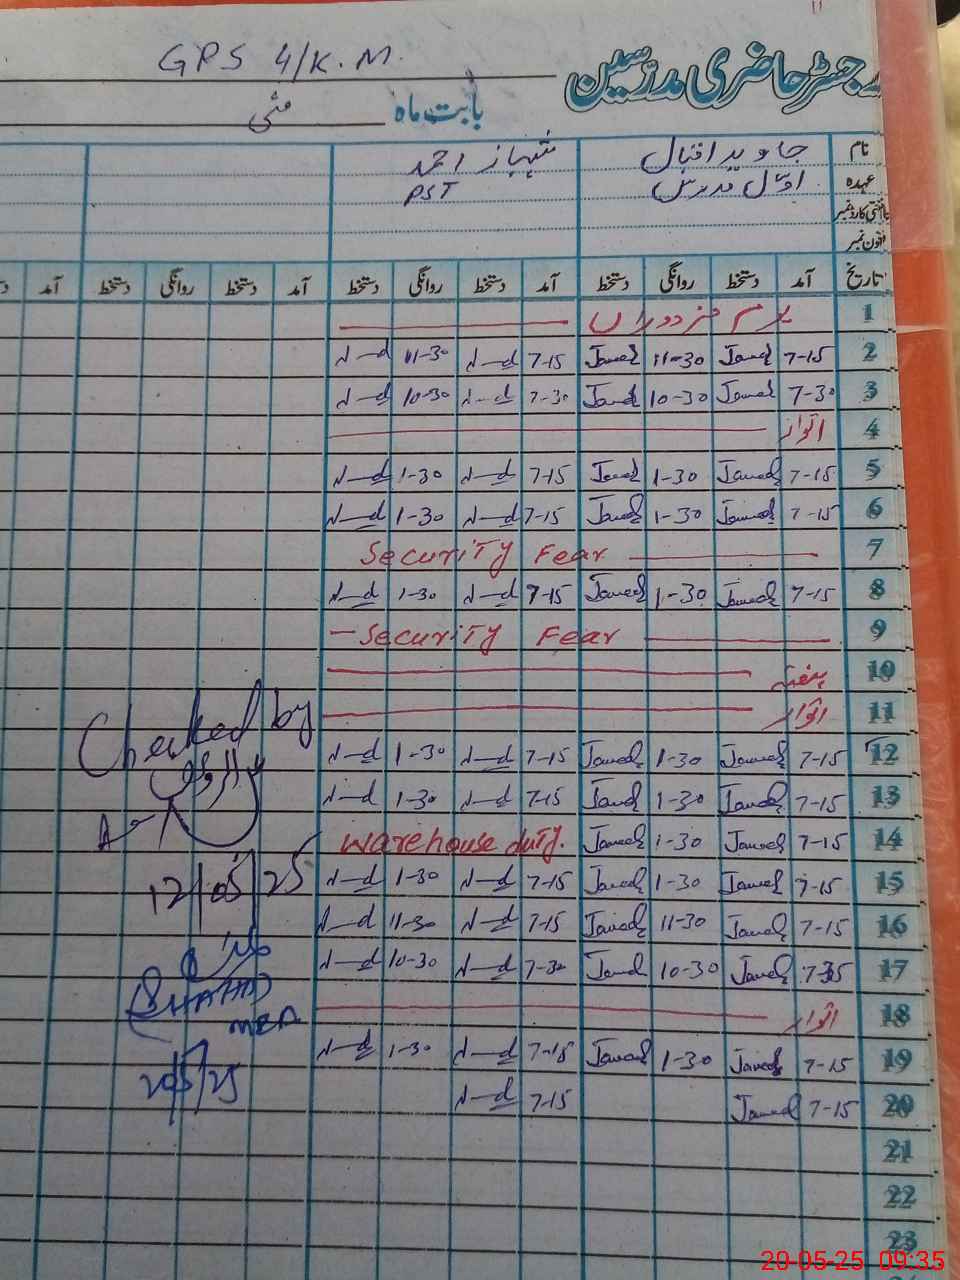 GPS 4/K.M.
رجسٹر حاضری مدرسین
بابت ماہ مئی
نام جاوید اقبال شہباز احمد
عہدہ اول مدرس PST
شناختی کارڈ نمبر
فون نمبر
تاریخ آمد دستخط روانگی دستخط آمد دستخط روانگی دستخط آمد دستخط روانگی دستخط آمد
1 یوم مزدوراں
2 7-15 Javed 11-30 Javed 7-15 11-30
3 7-30 Javed 10-30 Javed 7-30 10-30
4 اتوار
5 7-15 Javed 1-30 Javed 7-15 1-30
6 7-15 Javed 1-30 Javed 7-15 1-30
7 Security Fear
8 7-15 Javed 1-30 Javed 7-15 1-30
9 Security Fear
10 ہفتہ
11 اتوار
12 7-15 Javed 1-30 Javed 7-15 1-30
13 7-15 Javed 1-30 Javed 7-15 1-30
14 7-15 Javed 1-30 Javed warehouse duty.
15 7-15 Javed 1-30 Javed 7-15 1-30
16 7-15 Javed 11-30 Javed 7-15 11-30
17 Javed 10-30 Javed 7-30 10-30
18 اتوار
19 7-15 Javed 1-30 Javed 7-15 1-30
20 7-15 Javed 7-15
21
22
23
Checked by
12/05/25
MEA
20/5/25
20-05-25 09:35